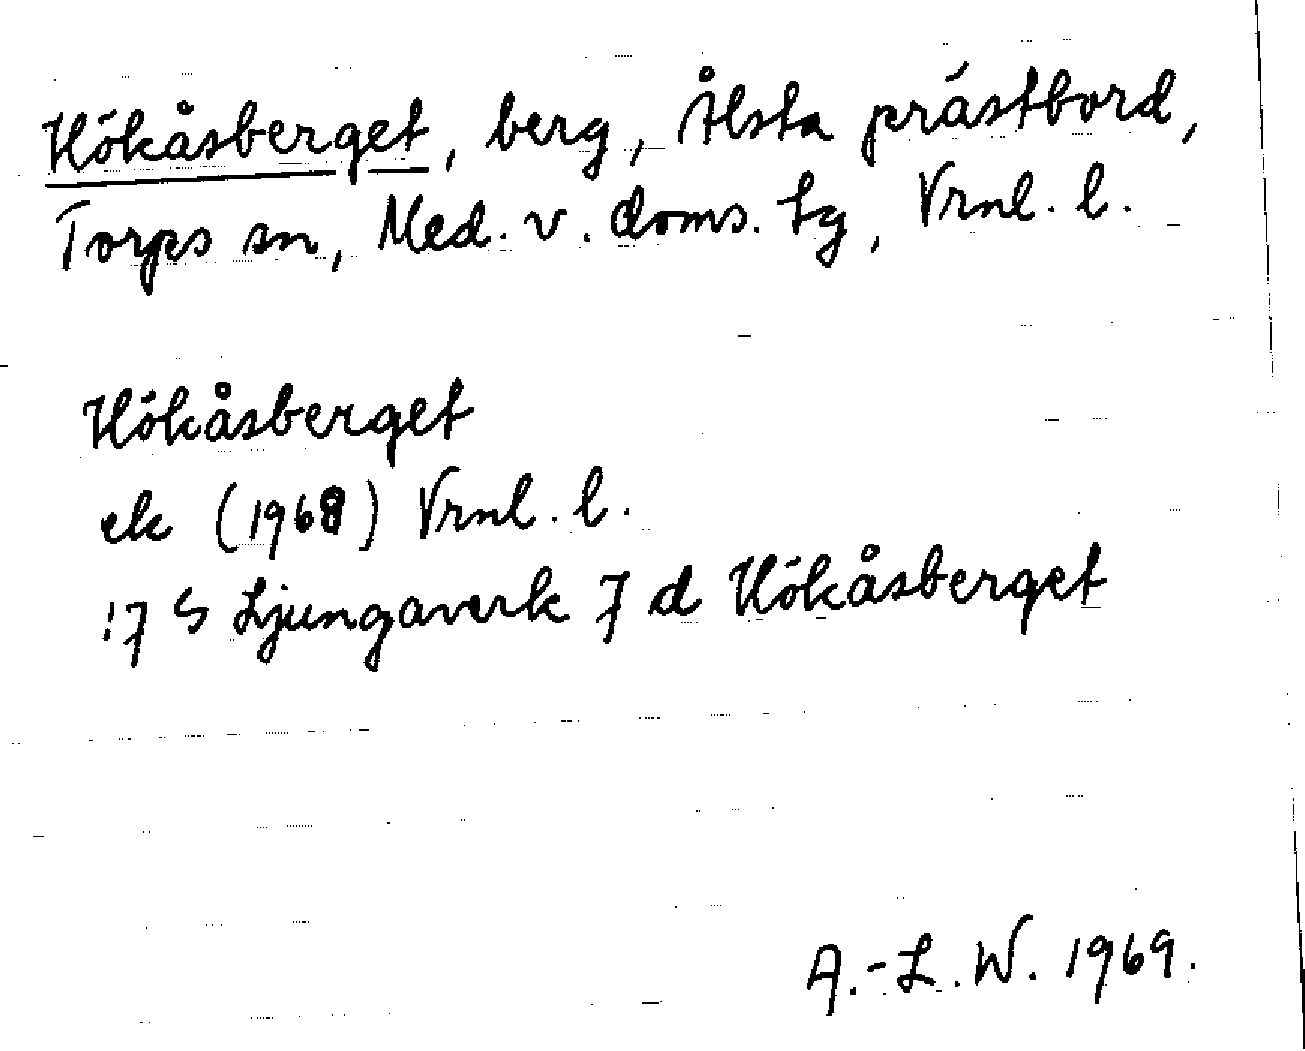 Hökåsberget, berg, Ålsta prästbord,
Torps sn, Med. v. doms. tg, Vrnl. l.
Hökåsberget
ek (1968) Vrnl. l.
17 G Ljungaverk 7 d Hökåsberget
A.-L. W. 1969.